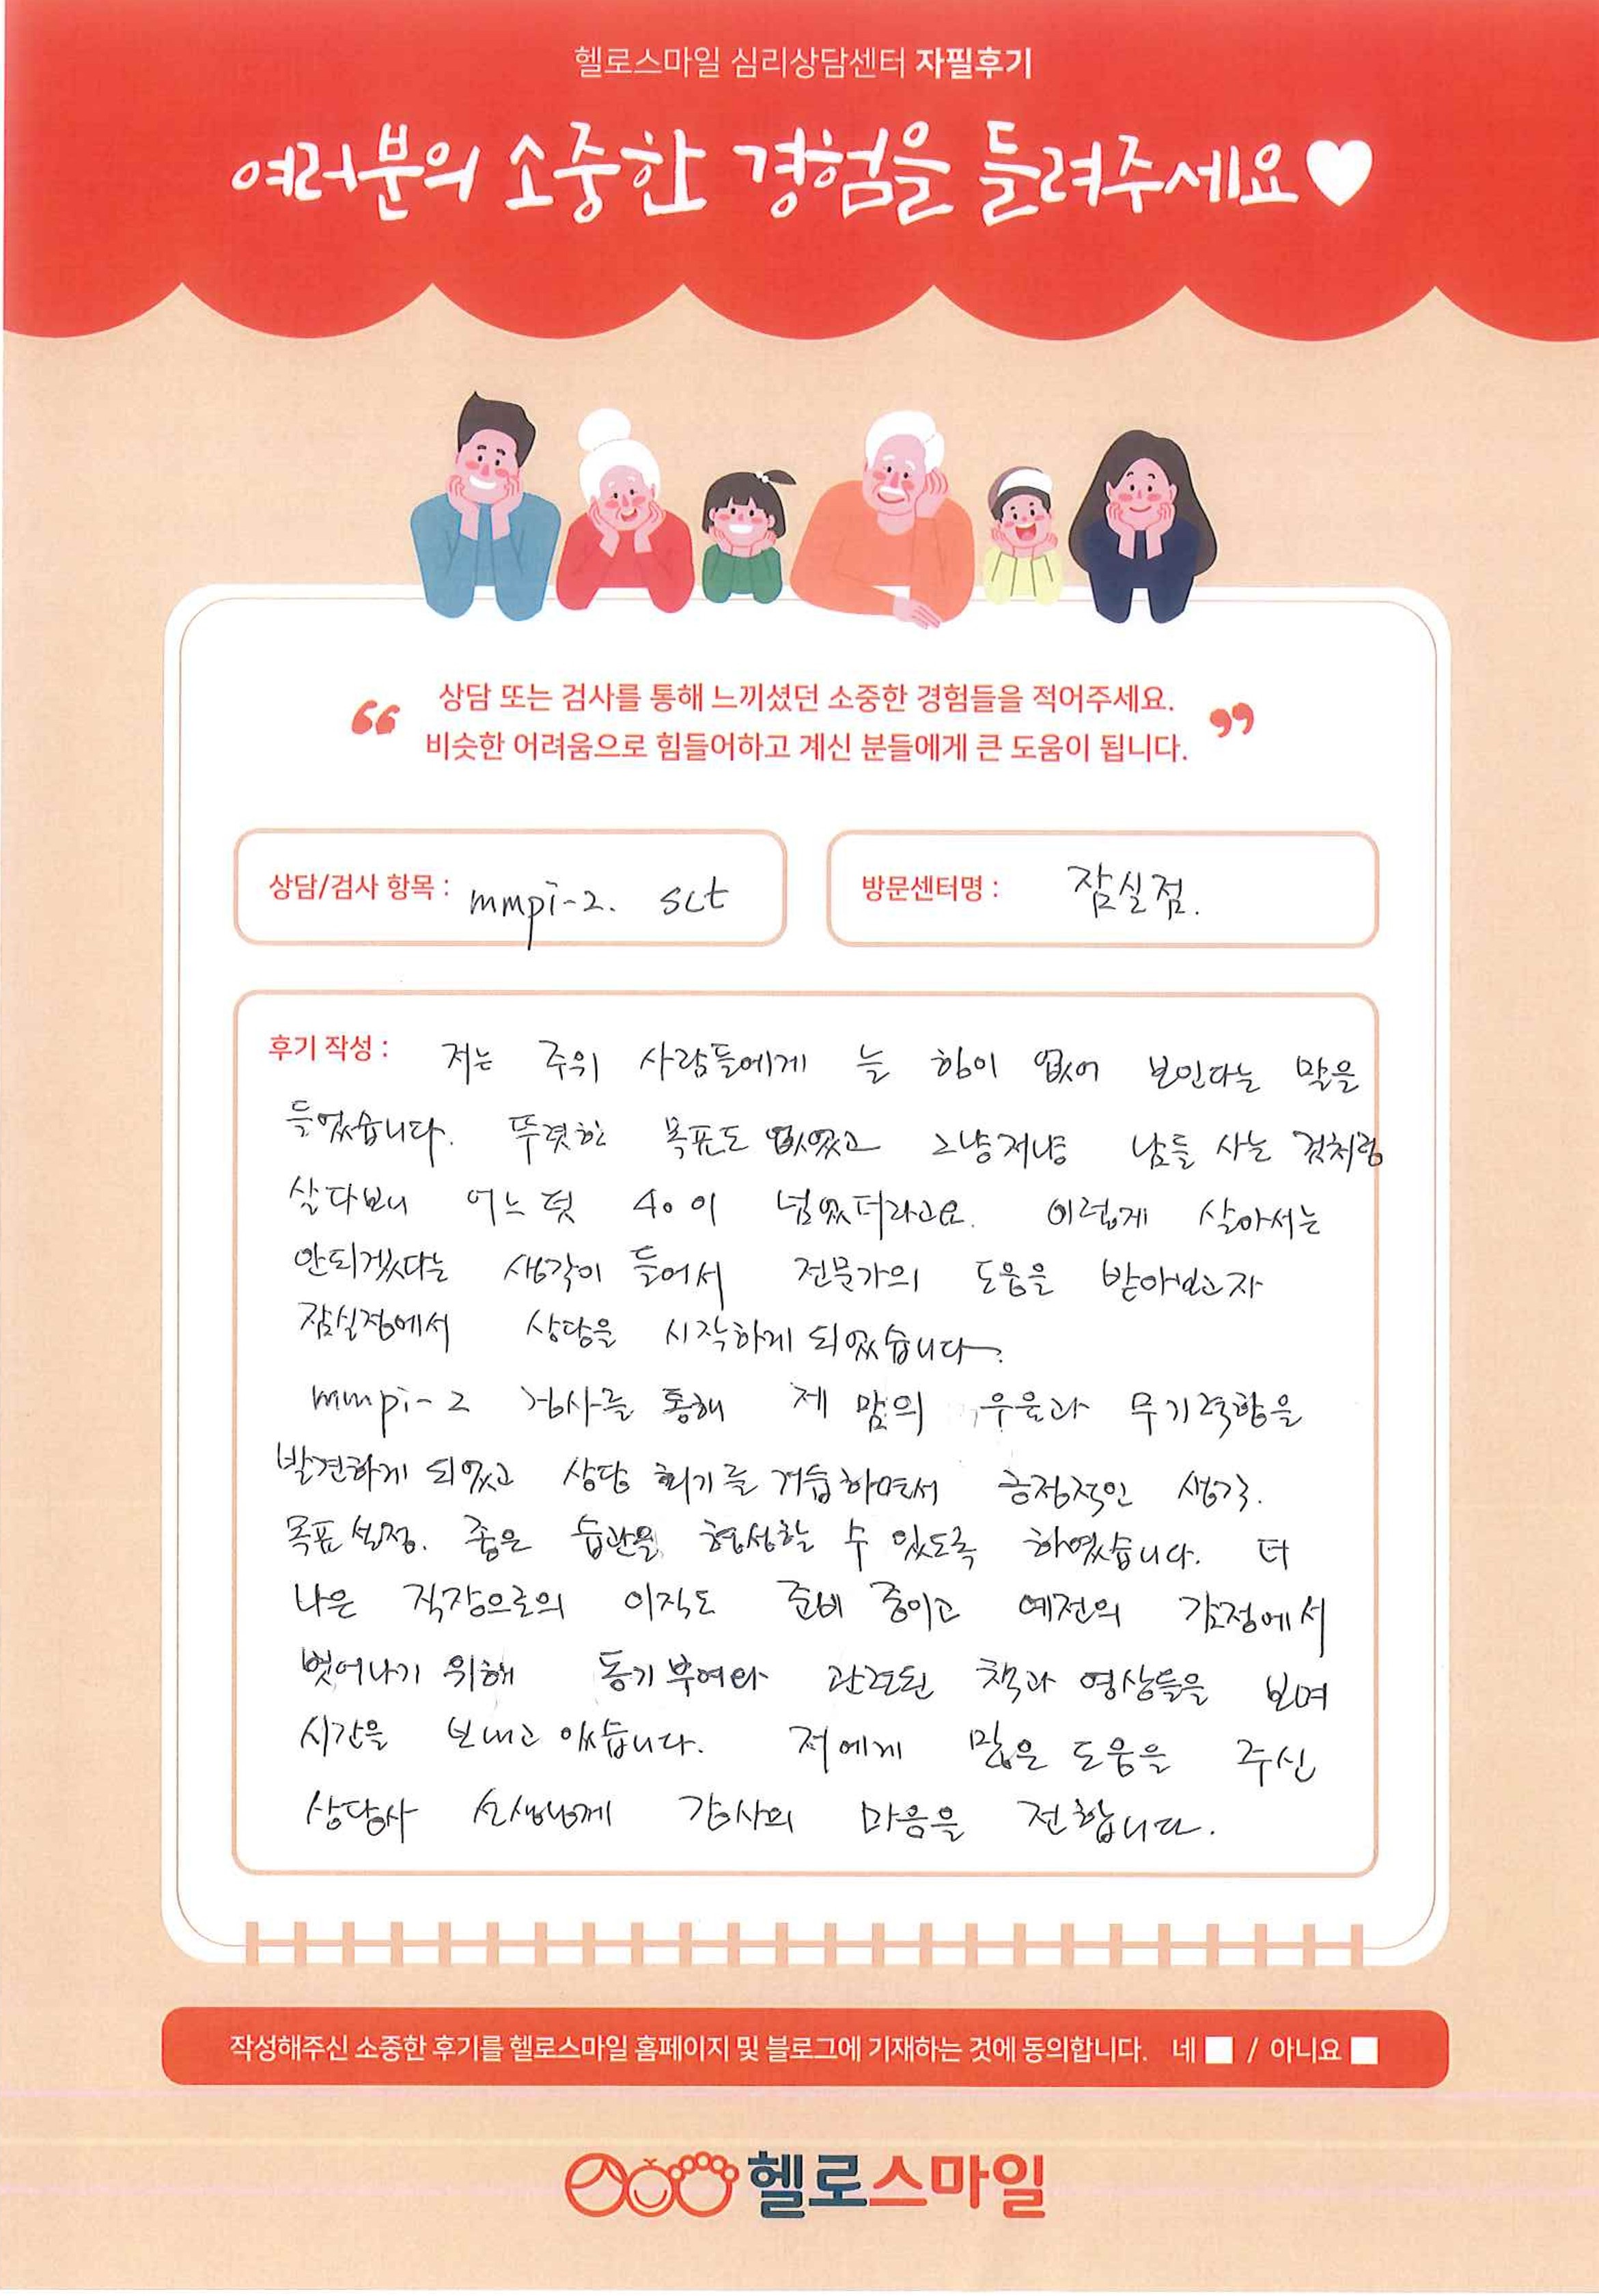 헬로스마일 심리상담센터 자필후기
여러분의 소중한 경험을 들려주세요
상담 또는 검사를 통해 느끼셨던 소중한 경험들을 적어주세요.
비슷한 어려움으로 힘들어하고 계신 분들에게 큰 도움이 됩니다.
상담/검사 항목 : mmpi-2. sct
방문센터명 : 잠실점.
후기 작성 : 저는 주위 사람들에게 늘 힘이 없어 보인다는 말을
들었습니다. 뚜렷한 목표도 없었고 그냥저냥 남들 사는 것처럼
살다보니 어느 덧 40이 넘었더라고요. 이렇게 살아서는
안되겠다는 생각이 들어서 전문가의 도움을 받아보고자
잠실점에서 상담을 시작하게 되었습니다.
mmpi-2 검사를 통해 제 맘의 우울과 무기력함을
발견하게 되었고 상담 회기를 거듭하면서 긍정적인 생각.
목표 설정. 좋은 습관을 형성할 수 있도록 하였습니다. 더
나은 직장으로의 이직도 준비 중이고 예전의 감정에서
벗어나기 위해 동기부여와 관련된 책과 영상들을 보며
시간을 보내고 있습니다. 저에게 많은 도움을 주신
상담사 선생님께 감사의 마음을 전합니다.
작성해주신 소중한 후기를 헬로스마일 홈페이지 및 블로그에 기재하는 것에 동의합니다. 네 / 아니요
헬로스마일